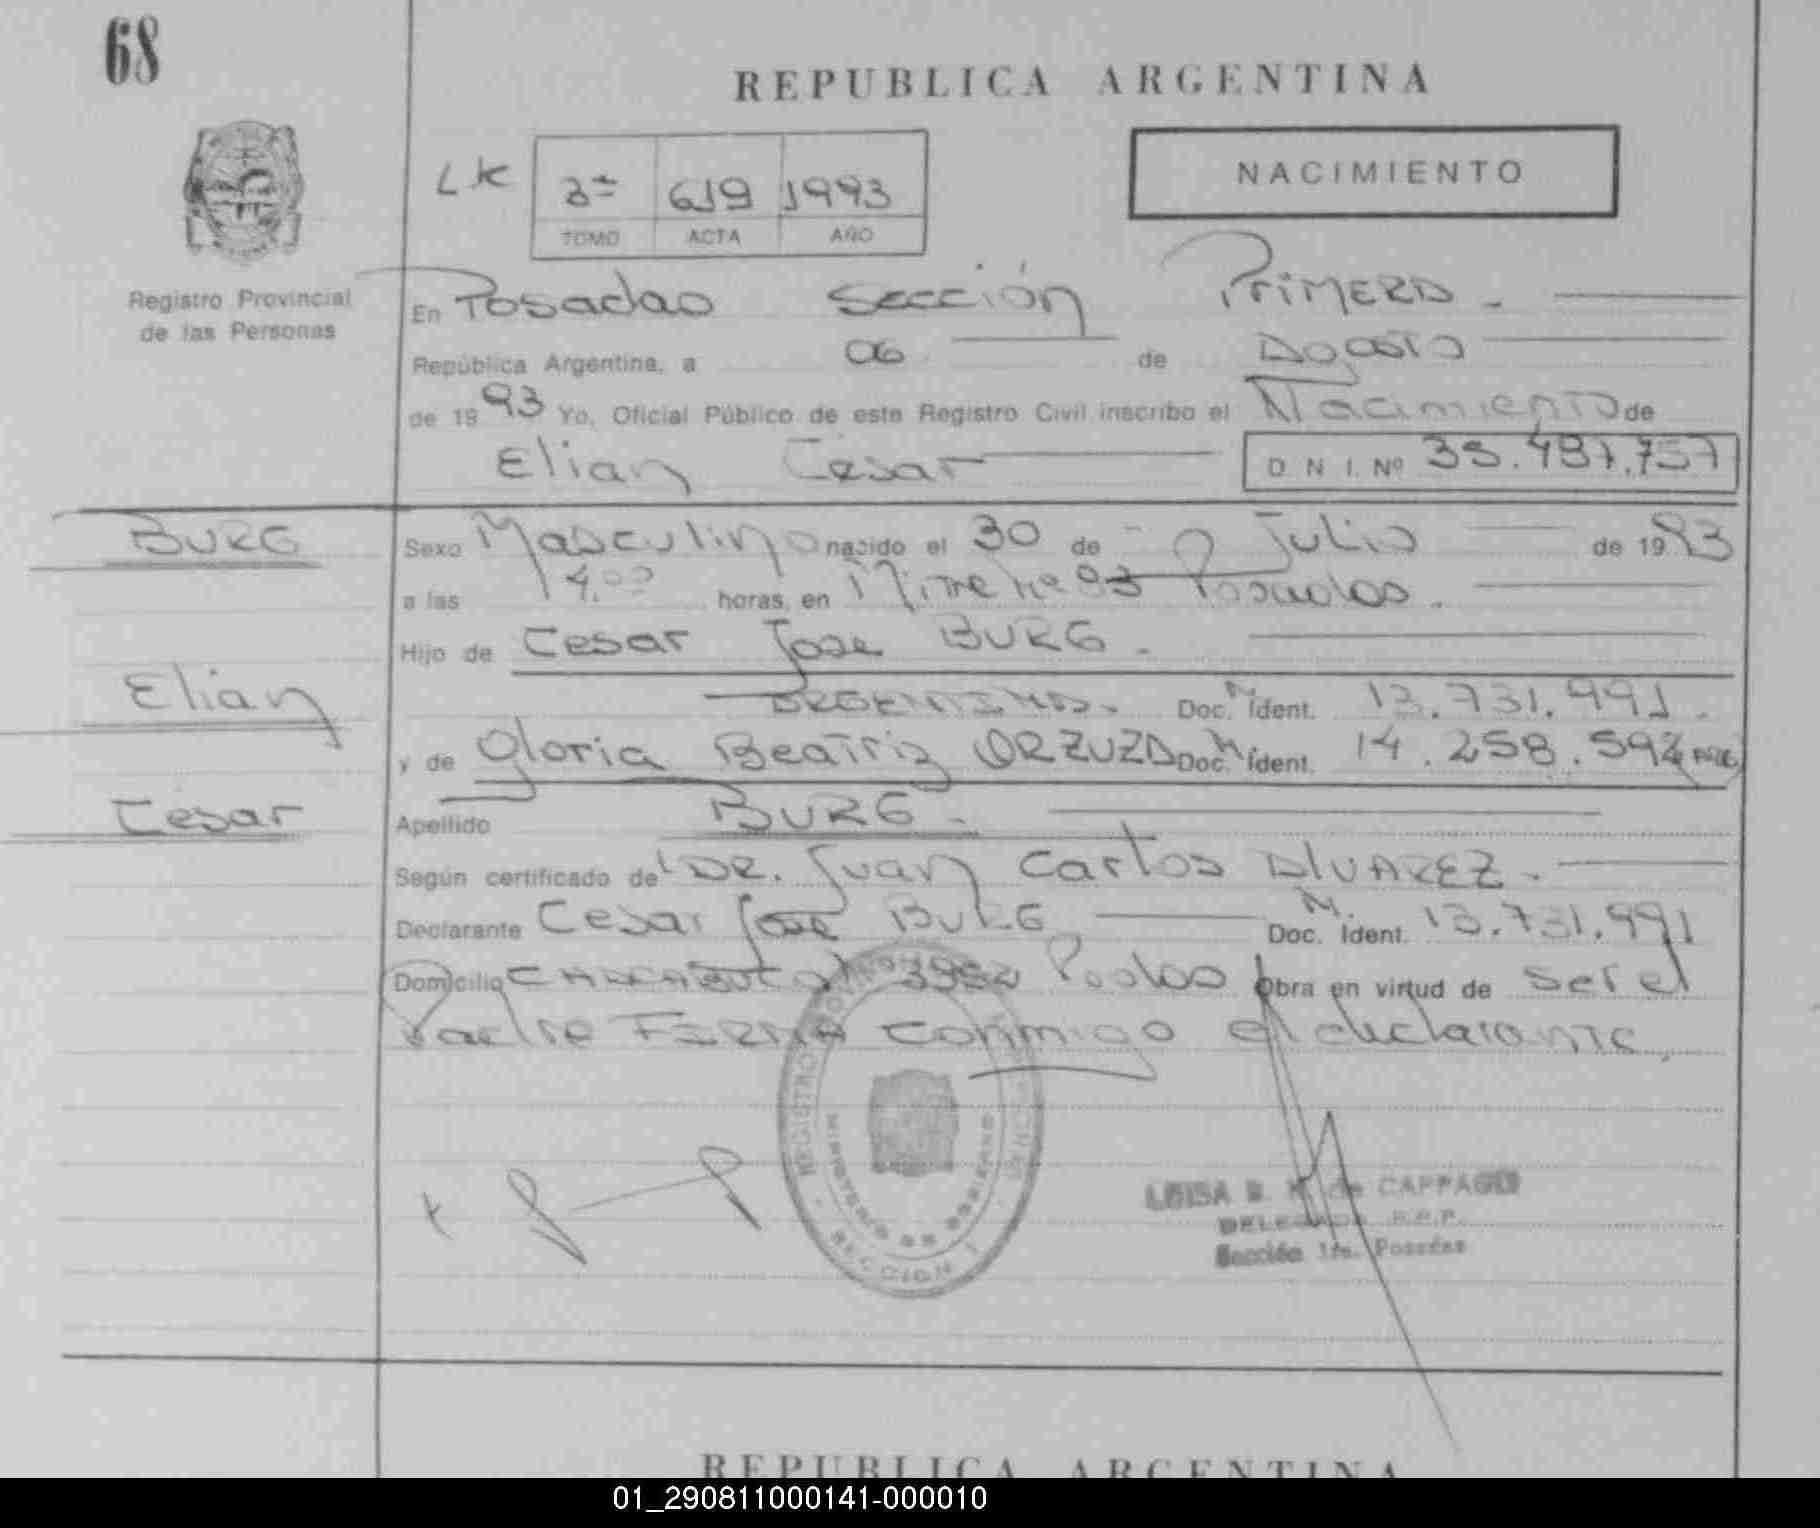 68
REPUBLICA ARGENTINA
NACIMIENTO
3ª 619 1993
TOMO ACTA AÑO
Registro Provincial
de las Personas
En Posadas Sección Primera.
República Argentina, a 06 de Agosto
de 1993 Yo, Oficial Público de este Registro Civil inscribo el Nacimiento de
Elian Cesar D N I. Nº
BURG
Sexo Masculino nacido el 30 de Julio de 1993
a las 14,00 horas, en Mitre nº 93 Posadas.
Hijo de Cesar Jose BURG.
Elian
ARGENTINO. Doc. M. Ident. 13.731.991.
y de Gloria Beatriz ORZUZA Doc. M. Ident. 14.258.592
Cesar
Apellido BURG.
Según certificado de DR. Juan Carlos Alvarez.
Declarante Cesar Jose BURG Doc. M. Ident. 13.731.991
Domicilio CHACABUCO Obra en virtud de ser el
Padre FIRMA conmigo el declarante.
REGISTRO
MINISTERIO DE GOBIERNO
SECCION 1
LUISA de CAPPAGLI
DELEGADA R.P.P.
Sección 1ra. Posadas
REPUBLICA ARGENTINA
01_290811000141-000010